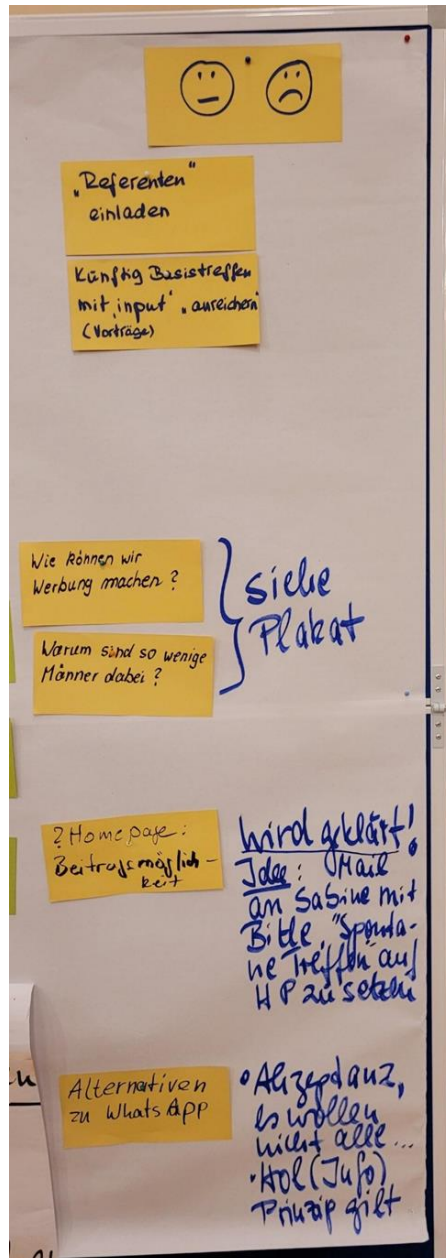 „Referenten"
einladen
Künftig Basistreffen
mit „input" „anreichern"
(Vorträge)
Wie können wir
Werbung machen ?
Warum sind so wenige
Männer dabei ?
siehe
Plakat
? Homepage:
Beitragsmöglich-
keit
wird geklärt!
Idee: Mail
an Sabine mit
Bitte, "Sponta-
ne Treffen" auf
HP zu setzen
Alternativen
zu WhatsApp
• Akzeptanz,
es wollen
nicht alle ...
• Hol (Info)
Prinzip gilt